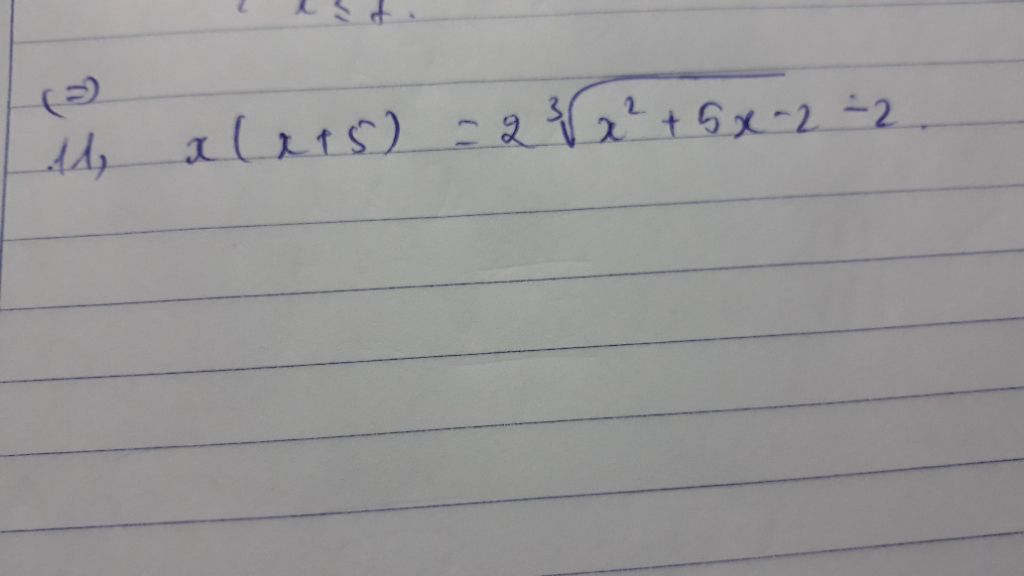 x ≤ 1.
(=)
11, x(x+5) = 2∛(x²+5x-2) -2.